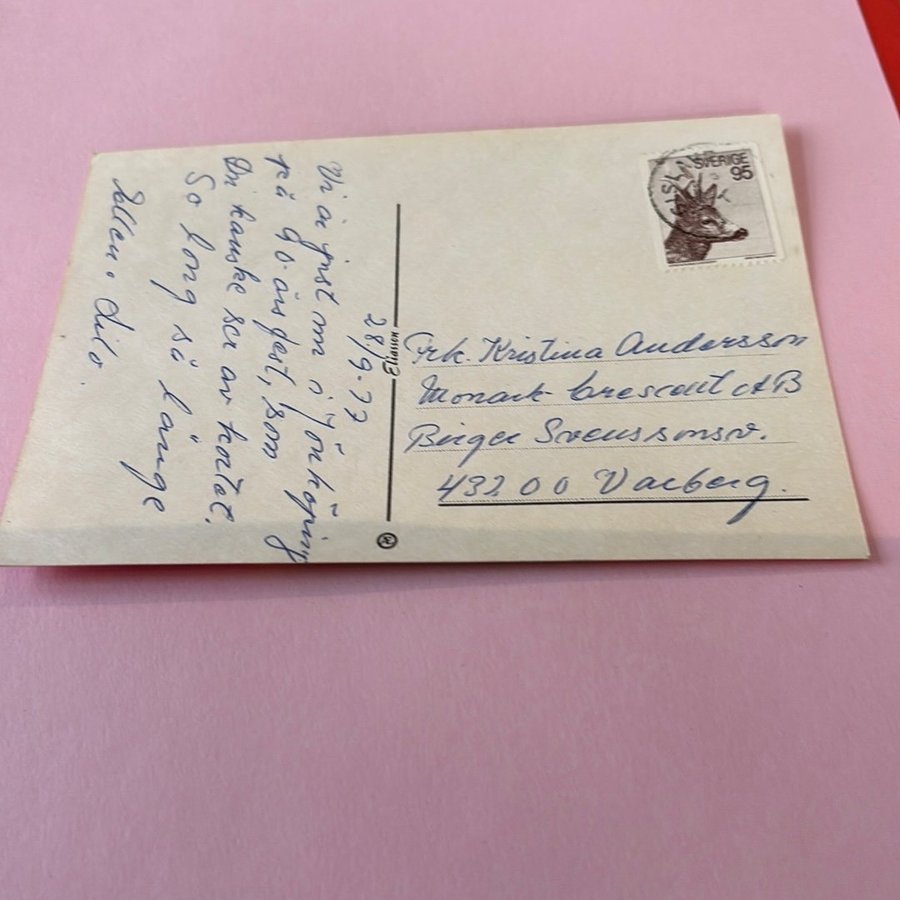 28/9-77
Vi är just nu i Jönköping
på 90-årsfest, som
Du kanske ser av kortet.
So long så länge
SVERIGE
95
Frk. Kristina Andersson
Monark-Crescent AB
Birger Svenssonsv.
432 00 Varberg.
Eliasson